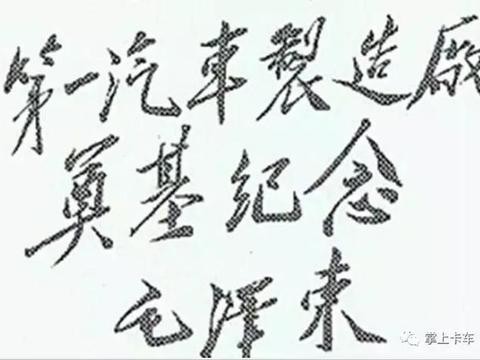 第一汽車製造廠
奠基纪念
毛澤東
掌上卡车